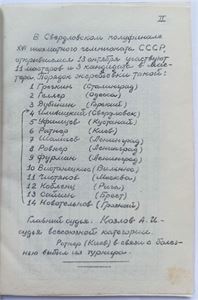 II
В Свердловском полуфинале
XVI шахматного чемпионата СССР,
открывшемся 13 октября участвуют
11 мастеров и 3 кандидата в мас-
тера. Порядок жеребьевки таков:
1 Грёкин (Сталинград)
2 Геллер (Одесса)
3 Дубинин (Горький)
4 Ильивицкий (Свердловск)
5 (Кустанай)
6 Ратнер (Киев)
7 (Ленинград)
8 Ровнер (Ленинград)
9 Фурман (Ленинград)
10 Вистанецкис (Вильнюс)
11 Чистяков (Москва)
12 Кобленц (Рига)
13 Сайгин (Брест)
14 Новотельнов (Грозный)
Главный судья: Козлов А. И.
судья всесоюзной категории.
Ратнер (Киев) в связи с болез-
нью выбыл из турнира.